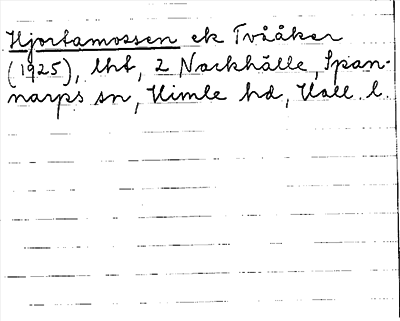 Hjortamossen ek Tvååker
(1925), lht, 2 Nackhälle, Span-
narps sn, Himle hd, Hall. l.